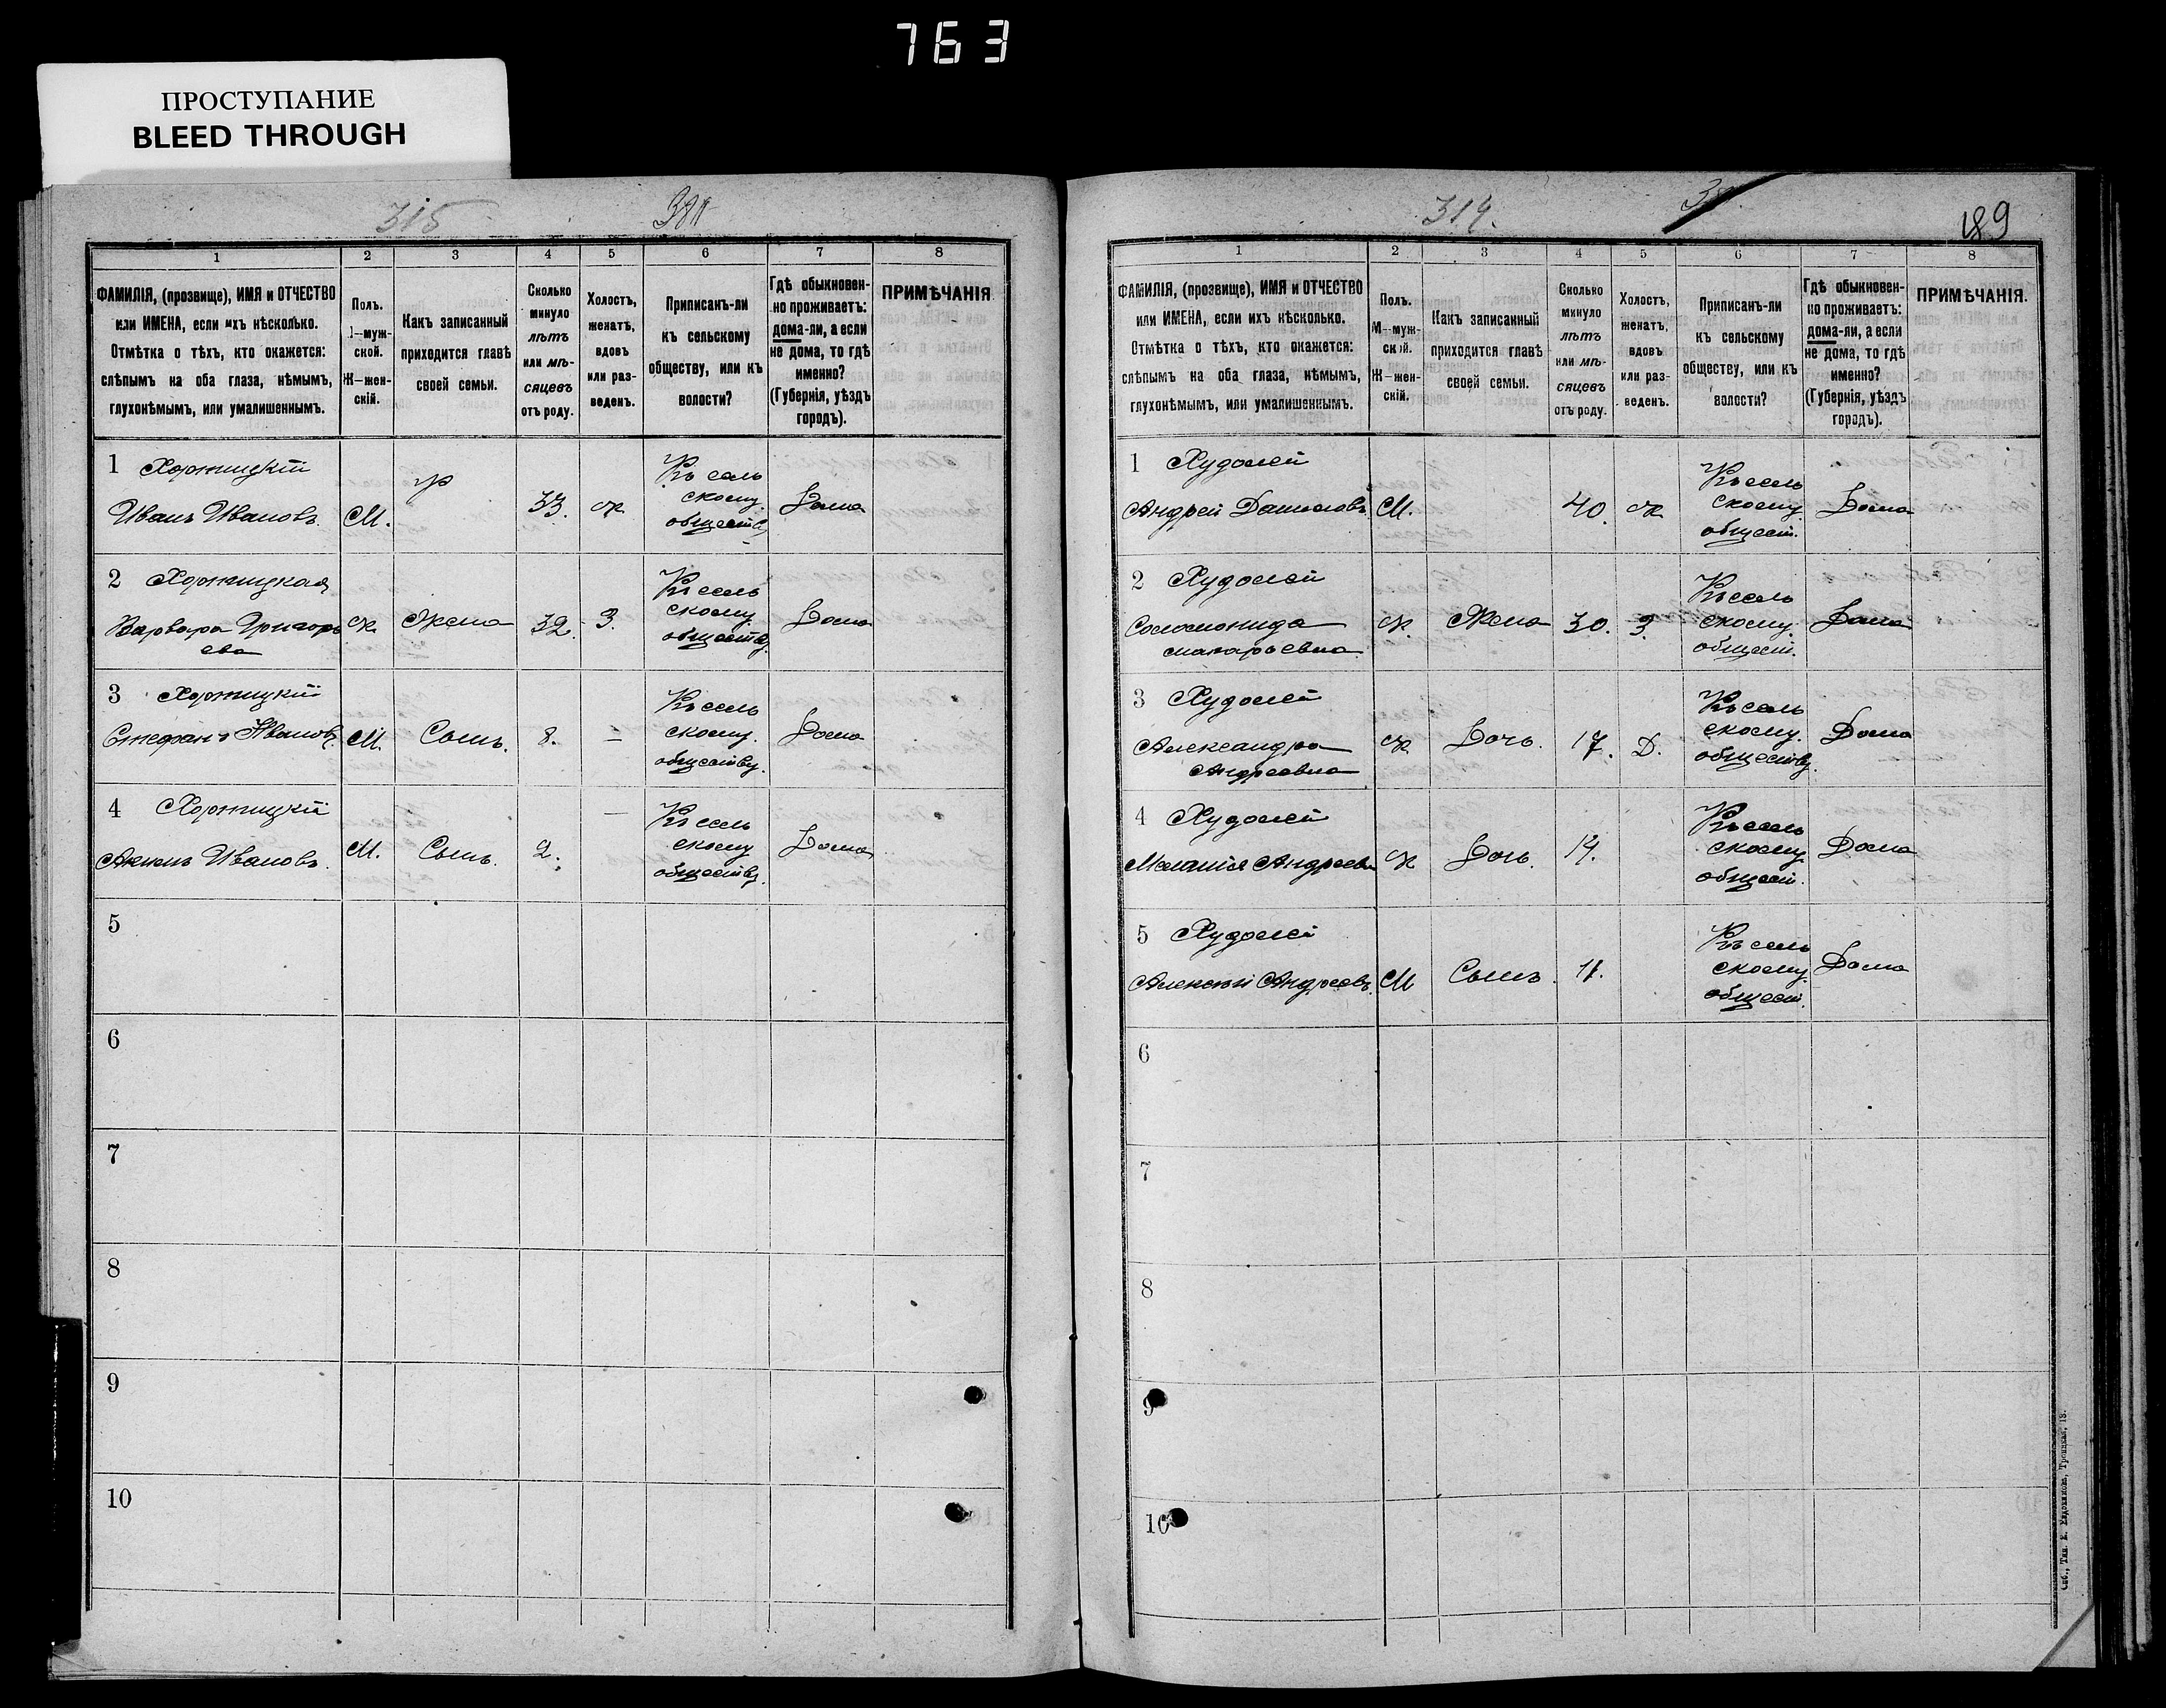 763
ПРОСТУПАНИЕ
BLEED THROUGH
315
1 2 3 4 5 6 7 8
ФАМИЛІЯ, (прозвище), ИМЯ и ОТЧЕСТВО
или ИМЕНА, если ихъ нѣсколько.
Отмѣтка о тѣхъ, кто окажется:
слѣпымъ на оба глаза, нѣмымъ,
глухонѣмымъ, или умалишеннымъ.
Полъ.
М—муж-
ской.
Ж—жен-
скій.
Какъ записанный
приходится главѣ
своей семьи.
Сколько
минуло
лѣтъ
или мѣ-
сяцевъ
отъ роду.
Холостъ,
женатъ,
вдовъ
или раз-
веденъ.
Приписанъ-ли
къ сельскому
обществу, или къ
волости?
Гдѣ обыкновен-
но проживаетъ:
дома-ли, а если
не дома, то гдѣ
именно?
(Губернія, уѣздъ
городъ).
ПРИМѢЧАНІЯ
1
Иванъ Ивановъ. М. 33. ж.
Къ сель
скому
Дома
2
Варвара Григорь
ева
ж. Жена 32. З.
Къ сель
скому
Дома
3
Стефанъ Ивановъ. М. Сынъ. 8. —
Къ сель
скому.
обществу.
Дома
4
Ивановъ. М. Сынъ. 2. —
Къ сель
скому
обществу.
Дома
5
6
7
8
9
10
314.
189
1 2 3 4 5 6 7 8
ФАМИЛІЯ, (прозвище), ИМЯ и ОТЧЕСТВО
или ИМЕНА, если ихъ нѣсколько.
Отмѣтка о тѣхъ, кто окажется:
слѣпымъ на оба глаза, нѣмымъ,
глухонѣмымъ, или умалишеннымъ.
Полъ.
М—муж-
ской.
Ж—жен-
скій.
Какъ записанный
приходится главѣ
своей семьи.
Сколько
минуло
лѣтъ
или мѣ-
сяцевъ
отъ роду.
Холостъ,
женатъ,
вдовъ
или раз-
веденъ.
Приписанъ-ли
къ сельскому
обществу, или къ
волости?
Гдѣ обыкновен-
но проживаетъ:
дома-ли, а если
не дома, то гдѣ
именно?
(Губернія, уѣздъ
городъ).
ПРИМѢЧАНІЯ.
1 Худолей
Андрей Даниловъ М. 40. ж
Къ сель
скому
общест.
Дома
2 Худолей
Соломонида
Макарьевна
ж. Жена 30. З.
Къ сель
скому.
общест.
Дома
3 Худолей
Александра
Андреевна
ж Дочь. 17. Д.
Къ сель
скому.
обществу.
Дома
4 Худолей
Меланія Андреевн ж Дочь. 14.
Къ сель
скому
общест.
Дома
5 Худолей
Алексѣй Андреевъ. М Сынъ. 11.
Къ сель
скому
общест.
Дома
6
7
8
9
10